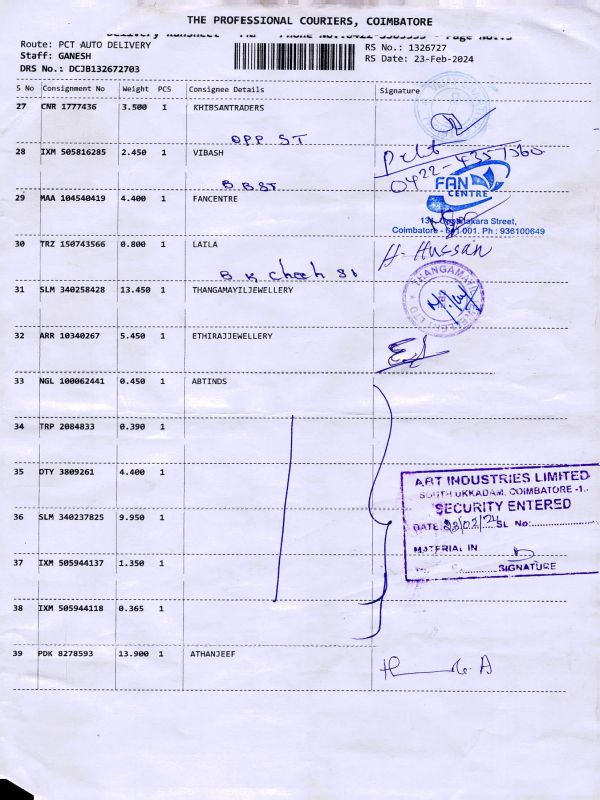 THE PROFESSIONAL COURIERS, COIMBATORE
Route: PCT AUTO DELIVERY
RS No.: 1326727
Staff: GANESH
RS Date: 23-Feb-2024
DRS No.: DCJB132672703
S No Consignment No Weight PCS Consignee Details Signature
27 CNR 1777436 3.500 1 KHIBSANTRADERS
OPP ST
28 IXM 505816285 2.450 1 VIBASH
0422-4357560
B.B.ST
29 MAA 104540419 4.400 1 FANCENTRE
FAN
CENTRE
Street,
Coimbatore - 641 001. Ph : 936100649
30 TRZ 150743566 0.800 1 LAILA
H. Hussain
B K
31 SLM 340258428 13.450 1 THANGAMAYILJEWELLERY
THANGAMAYIL
32 ARR 10340267 5.450 1 ETHIRAJJEWELLERY
33 NGL 100062441 0.450 1 ABTINDS
34 TRP 2084833 0.390 1
35 DTY 3809261 4.400 1
ABT INDUSTRIES LIMITED
SOUTH UKKADAM, COIMBATORE -1.
SECURITY ENTERED
36 SLM 340237825 9.950 1
DATE 23/02/24 SL No:
MATERIAL IN
37 IXM 505944137 1.350 1
SIGNATURE
38 IXM 505944118 0.365 1
39 PDK 8278593 13.900 1 ATHANJEEF